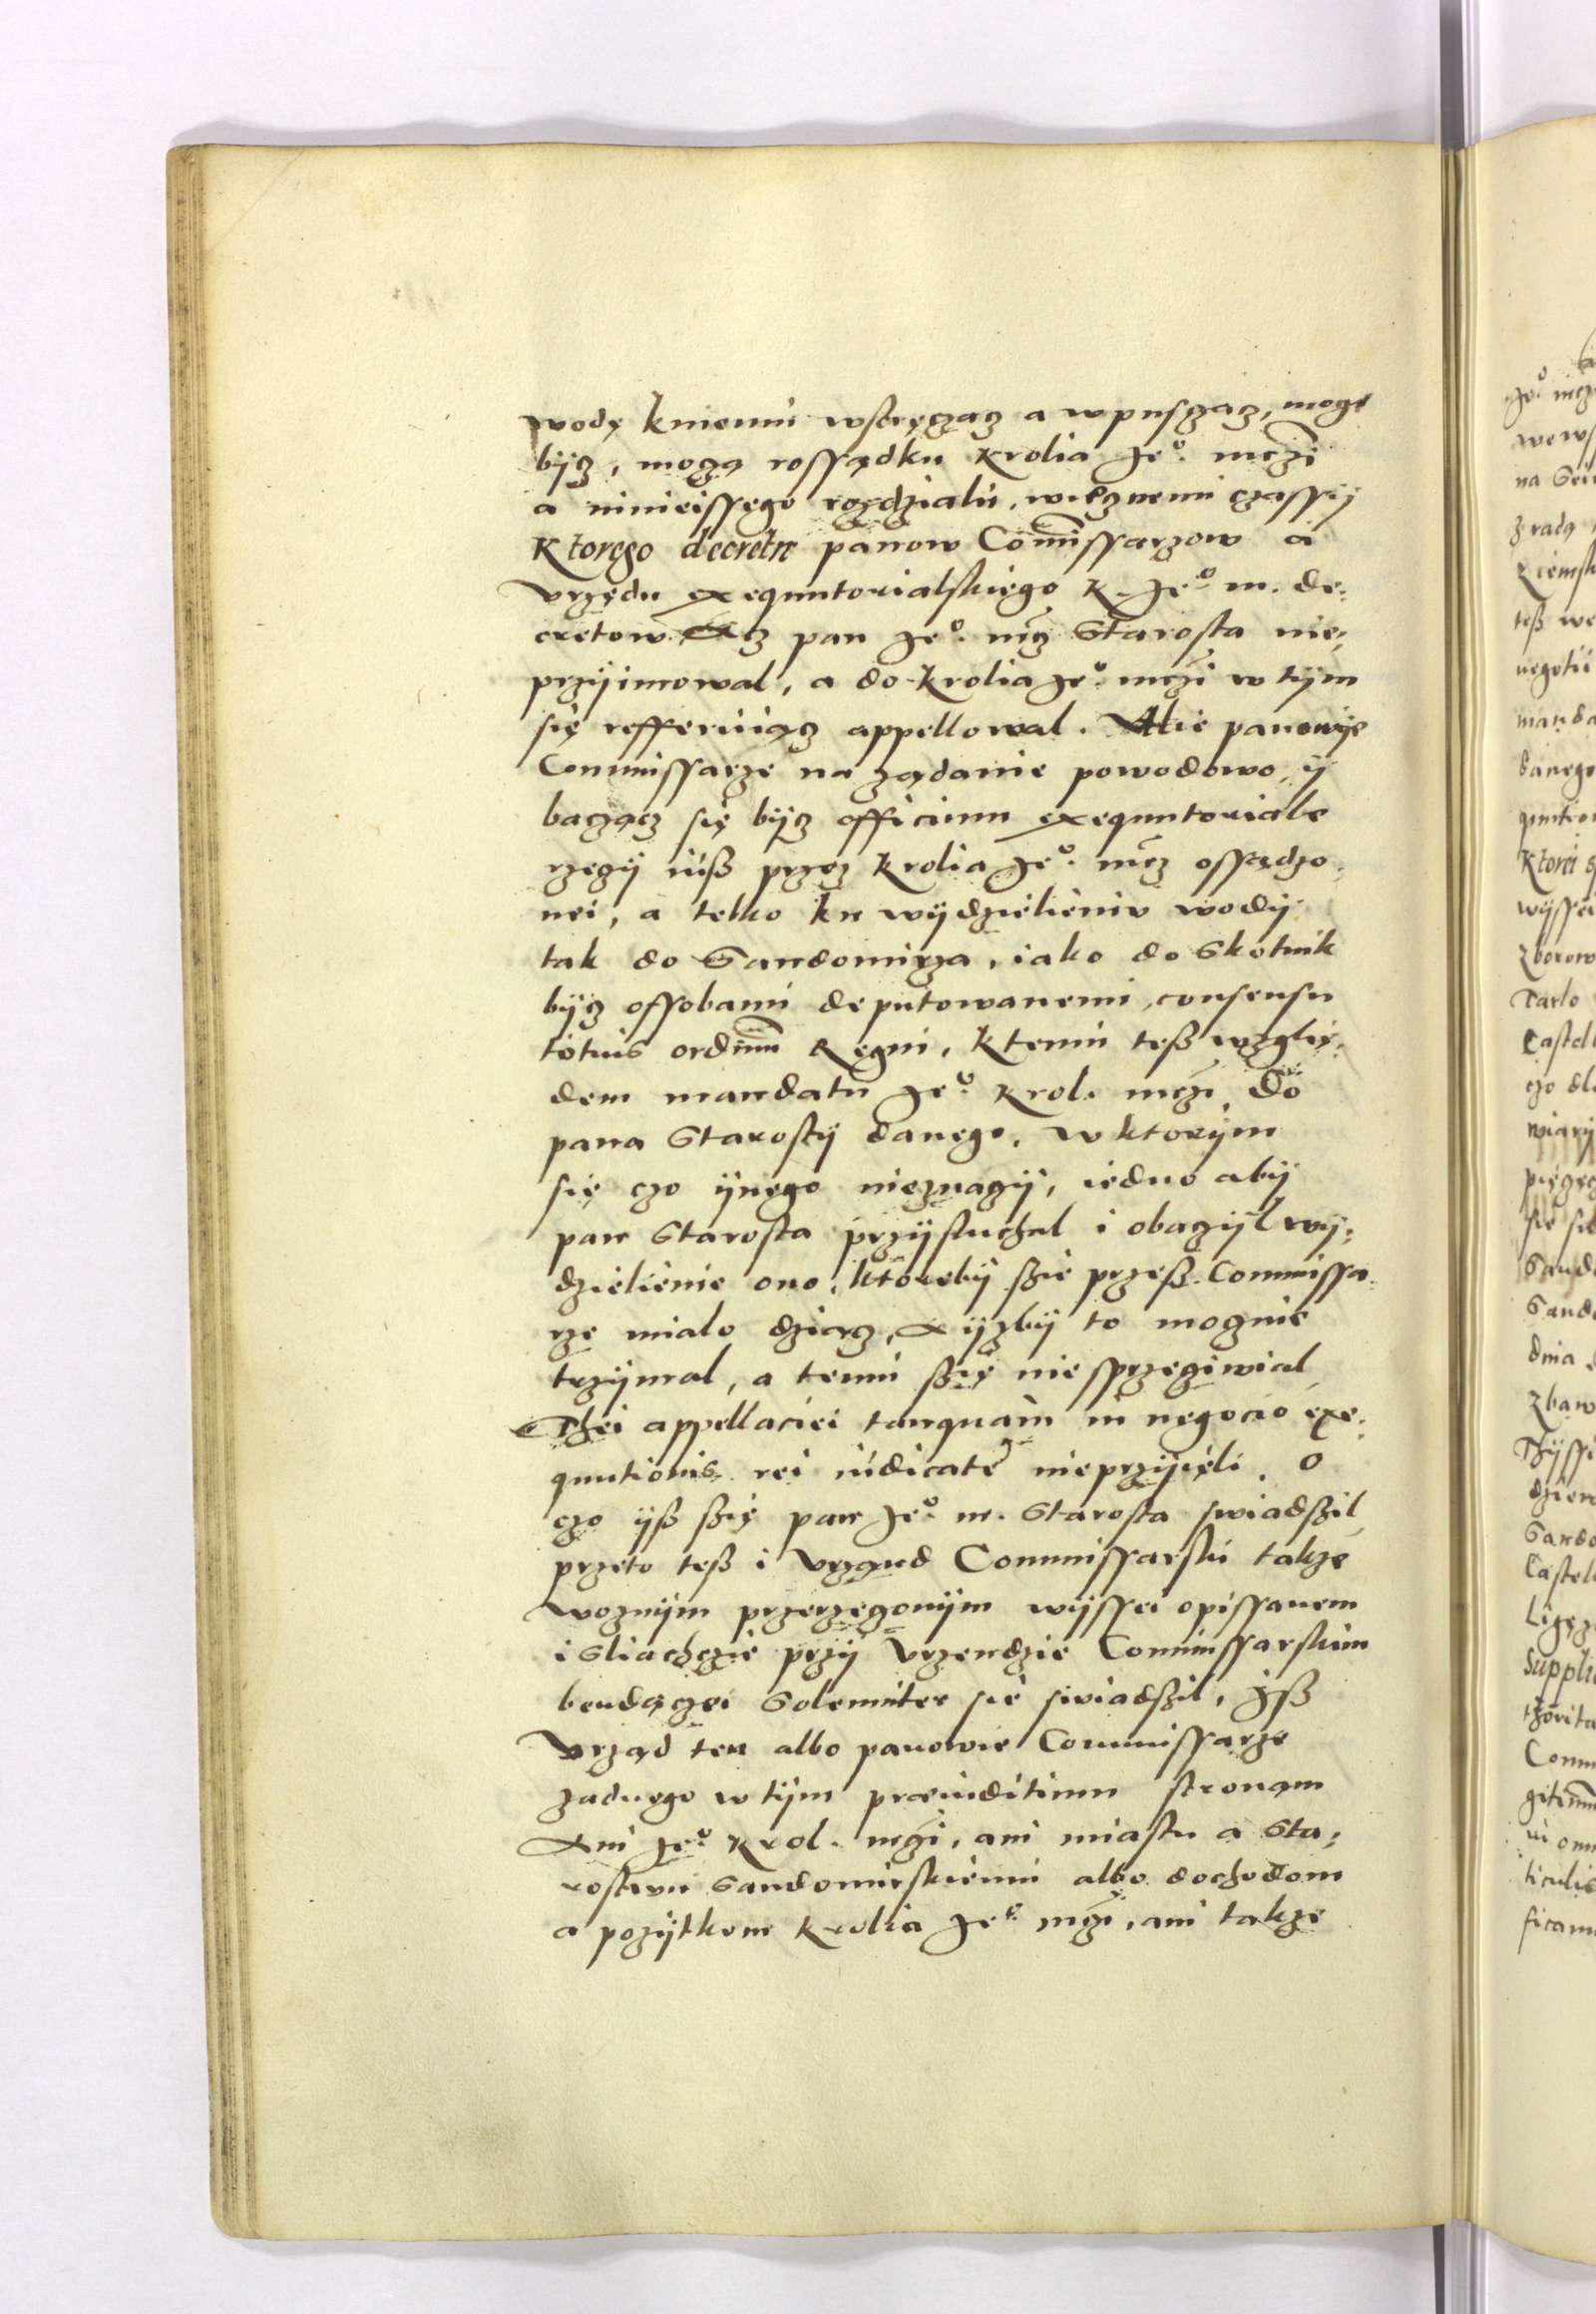 wodę kniemu wstręczacz a wpusczacz, moge
bycz, mocza rossądku Krolia Jeo. mczi
a ninieissego rozdzialu, wiecznemi czassy
Ktorego decretu panow Comissarzow a
Vrzędu exequutorialskiego K. Jeo. m. de:
cretow. Acz pan Jeo. mcz Starosta nie:
przyimowal, a do Krolia Jeo. mczi w tym
się refferuiącz appellowal. Alie panowye
Commissarze na ządanie powodowo, y
bacząc się bycz officium exequutoriale
rzeczy iuß przez Krolia Jeo. mcz ossądzo:
nei, a telko ku wydzielieniu wody
tak do Sandomirza, iako do Skotnik
bycz ossobami deputowanemi, consensu
totius ordinum Regni, Ktemu teß wzglię:
dem mandatu Jeo. Krol. mczi do
pana Starosty danego, w ktorym
się czo ynego nieznaczy, iedno aby
pan Starosta przysluchal i obaczyl wy:
dzielienie ono, ktoreby szie przeß Commissa:
rze mialo dziacz, A yzby to mocznie
trzymal, a temu szię niesprzeciwial
Thei appellaciei tanquam in negocio exe:
quutionis rei iudicate nieprzyięli. O
czo yß szię pan Jeo. m. Starosta swiadszil
przeto teß i Vrzand Commissarski takze
woznym przerzeczonym wyssei opissanem
i Sliachczie przy Vrzendzie Commissarskim
bendączei Solemniter sie swiadszil, Jß
Vrząd ten albo panowie Commissarze
zadnego w tym praeiuditium stronam
Ani Jeo. Krol. mczi, ani miastu a Sta:
rostwu Sandomirskiemu albo dochodom
a pozytkom Krolia Jeo. mczi, ani takze